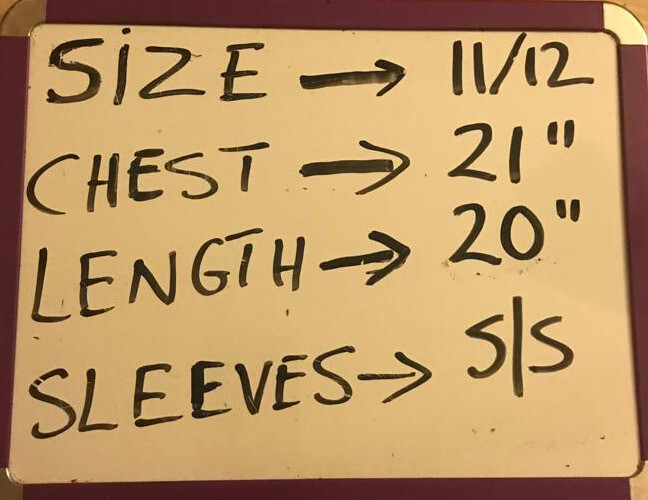 SiZE → 11/12
CHEST → 21"
LENGTH → 20"
SLEEVES → S|S